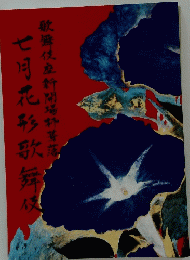 歌舞伎座新開場柿葺落
七月花形歌舞伎